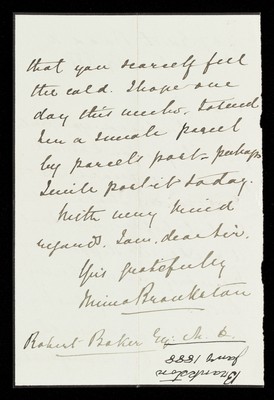 that you scarcely feel
the cold. I hope one
day this week, to send
her a small parcel
by parcel's post - perhaps
I will post it today.
With very kind
regards. I am, dear Sir.
Yrs gratefully
Mima Brankston
Robert Baker Esq: M.D.
Brankston
Jany 1888